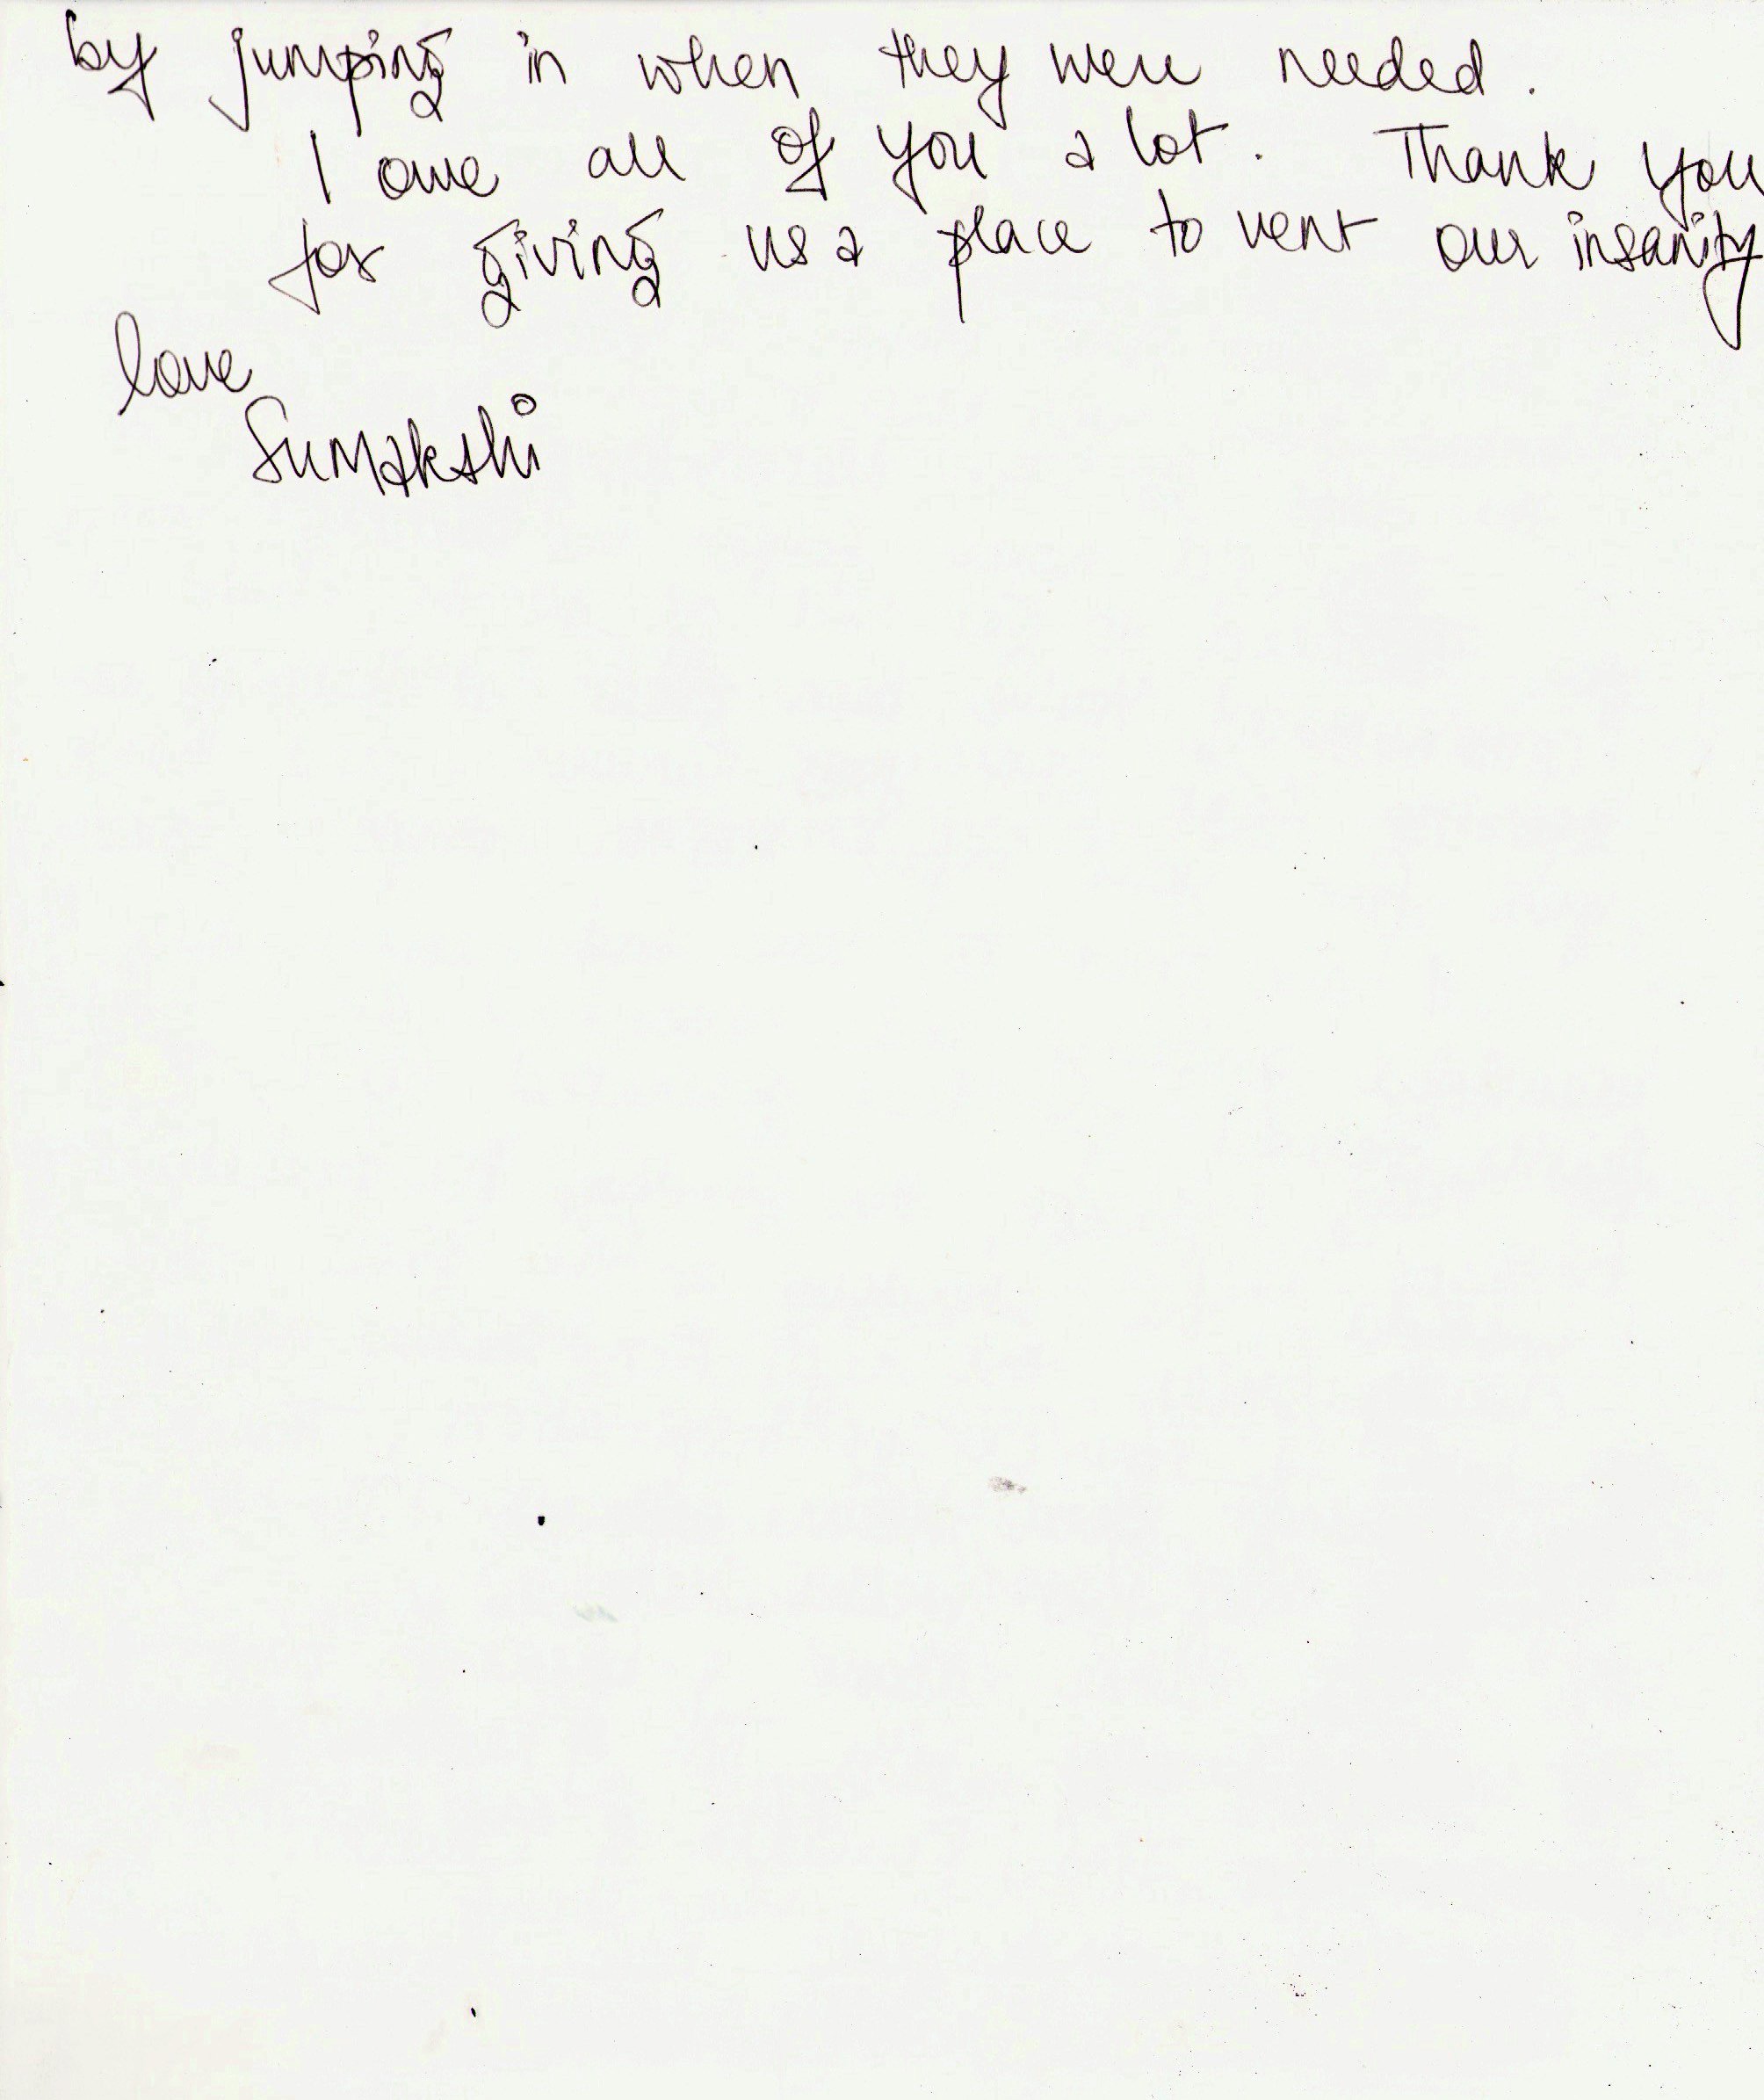 by jumping in when they were needed.
I owe all of you a lot. Thank you
for giving us a place to vent our insanity
love
Sumakshi